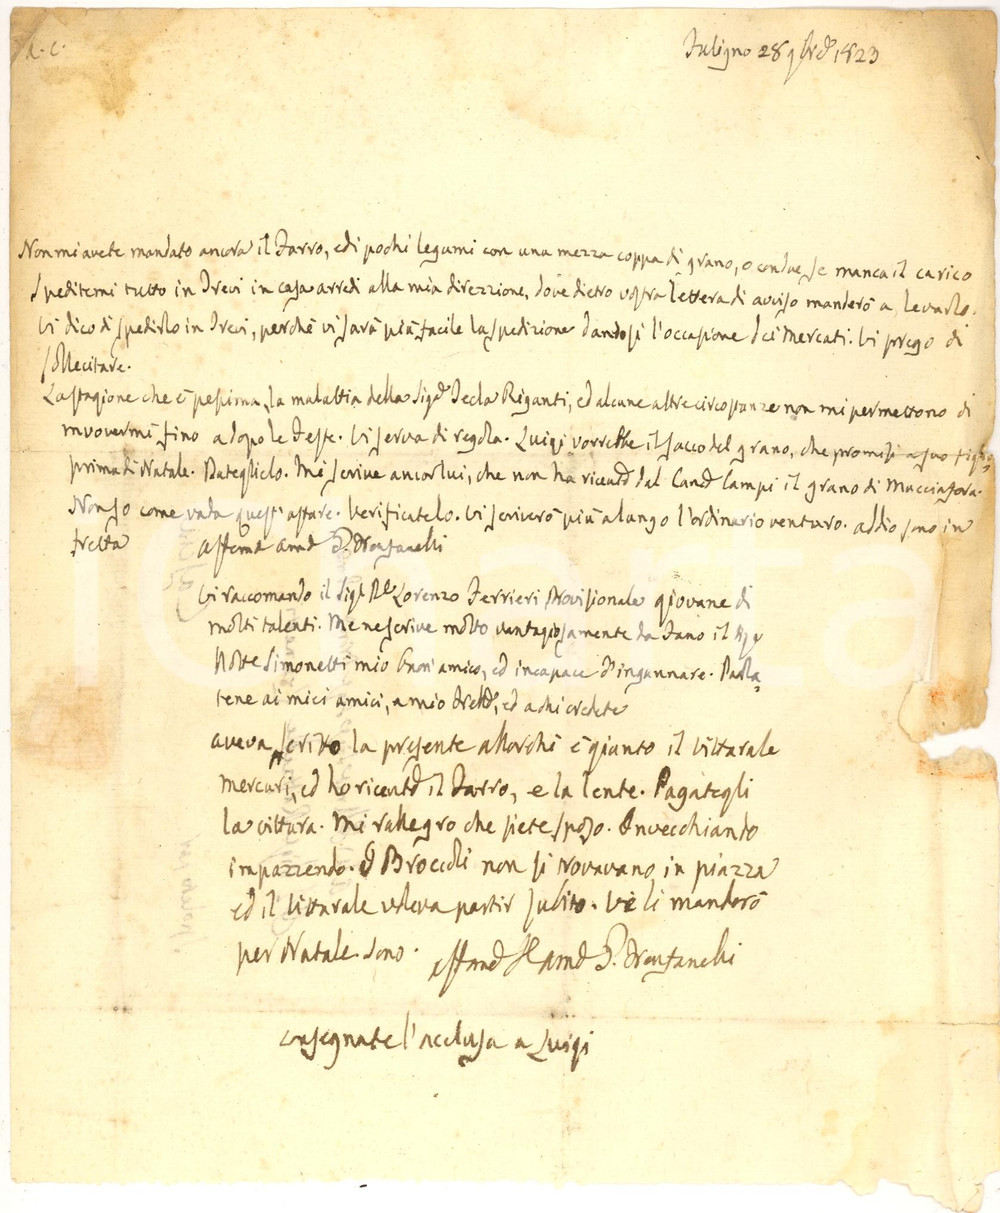 A. C.
Fuligno 28 9brе 1823
Non mi avete mandato ancora il Farro, e di pochi legumi con una mezza coppa di grano, o con due, se manca il carico
Speditemi tutto in Trevi in casa arredi alla mia direzzione, dove dietro vostra lettera di avviso manderò a levarlo.
Vi dico di spedirlo in Trevi, perchè vi sarà più facile la spedizione dandosi l'occasione dei Mercati. Vi prego di
sollecitare.
La stagione che è pessima, la malattia della Sigra Tecla Riganti, ed alcune altre circostanze non mi permettono di
muovermi fino a dopo le Feste. Vi serva di regola. Luigi vorrebbe il sacco del grano, che promisi a suo figlio
prima di Natale. Dateglielo. Mi scrive ancor lui, che non ha ricevuto dal Cancre Campi il grano di Mucciafora.
Non so come vada quest'affare. Verificatelo. Vi scriverò più a lungo l'ordinario venturo. addio sono in
fretta affemo amo P. Fronfanelli
Vi raccomando il Sigr Lorenzo Ferrieri Provisionale giovane di
molti talenti. Me ne scrive molto vantagiosamente da Fano il
Simonetti mio buon'amico, ed incapace d'ingannare. Parla
tene ai miei amici, a mio ed a chi credete
aveva scritto la presente allorchè è giunto il Vitturale
mercuri, ed ho ricevuto il Farro, e la lente. Pagategli
la vittura. Mi rallegro che siete sposo. Invecchiando
impazzendo. I Broccoli non si trovavano in piazza
ed il Vitturale voleva partir subito. Ve li manderò
per Natale. Sono. affmo amo P. Fronfanelli
consegnate l'acclusa a Luigi